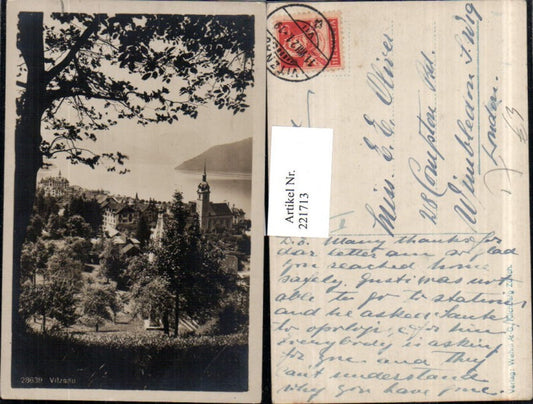 28639 Vitznau
VITZNAU
Artikel Nr.
221713
E. E. Oliver
28 Compton Rd.
Wimbledon S. W. 19
London.
63
Many thanks for
dear letter am so glad
you reached home
safely. Gusti was not
able to go to station
and he askes Tante
to apologi, for him
everybody is asking
for you and they
can't understand
why you have gone.
Verlag: Wehrli A.G., Kilchberg-Zürich